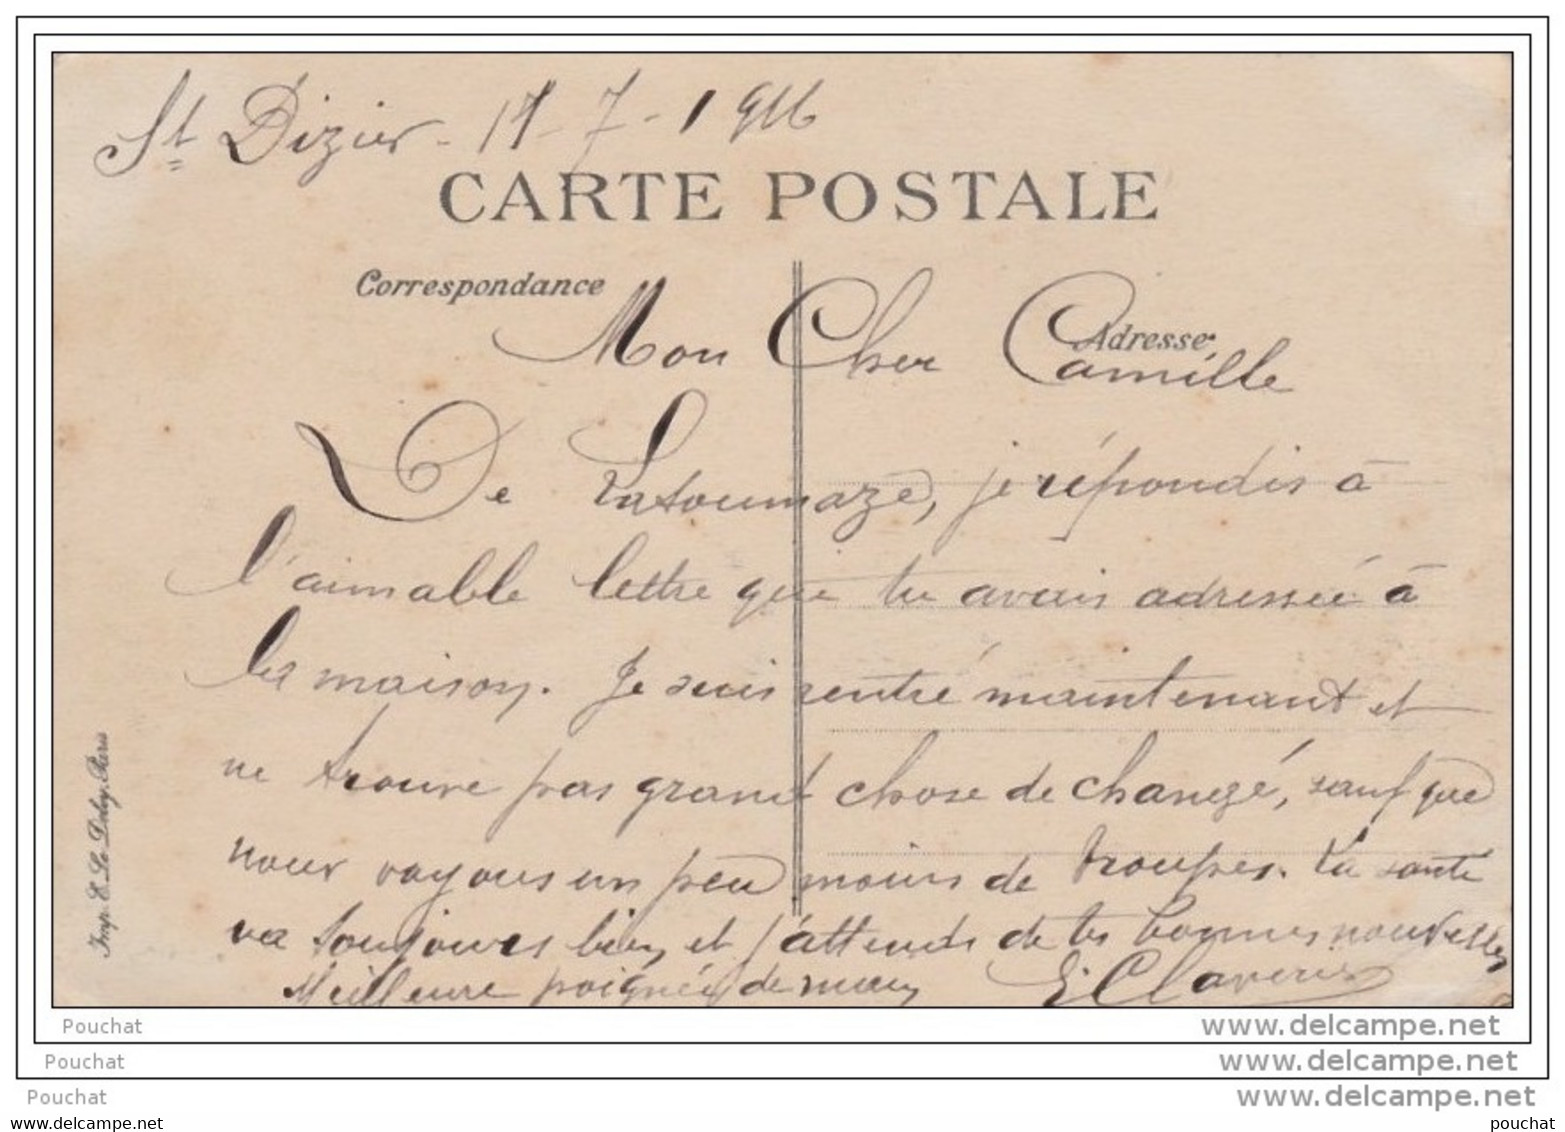 St Dizier - 17-7-1916
CARTE POSTALE
Correspondance
Adresse
Mon Cher Camille
De Latoumaze, je répondis à
l'aimable lettre que tu avais adressée à
la maison. Je suis rentré maintenant et
ne trouve pas grand chose de changé, sauf que
nous voyons un peu moins de troupes. La santé
va toujours bien et j'attends de tes bonnes nouvelles
Meilleure poignée de main E. Claverie
Imp. E. Le Deley, Paris
Pouchat
www.delcampe.net
Pouchat
www.delcampe.net
Pouchat
www.delcampe.net
www.delcampe.net
pouchat